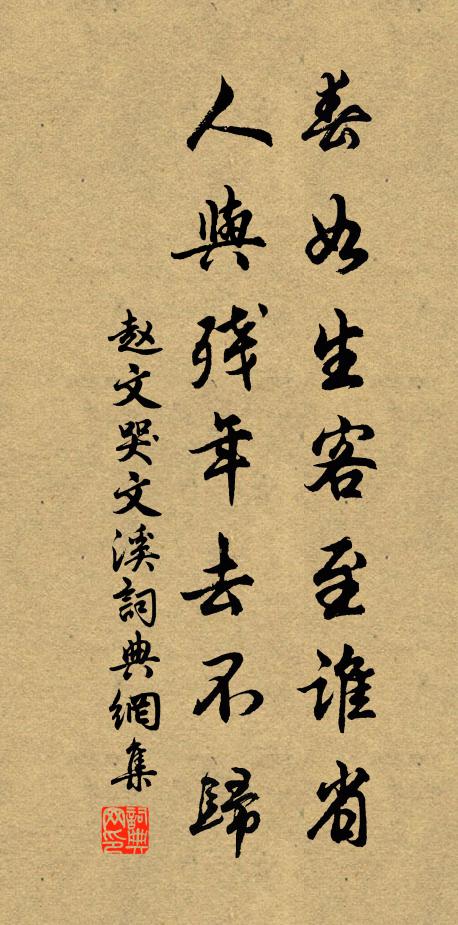 春如生客至谁省
人與残年去不歸
赵文哭文溪詞典網集
詞典网印